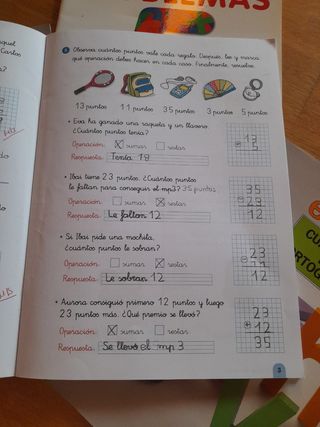 LEMAS
Carlos
1 Observa cuántos puntos vale cada regalo. Después, lee y marca
qué operación debes hacer en cada caso. Finalmente, resuelve.
13 puntos 11 puntos 35 puntos 3 puntos 5 puntos
• Eva ha ganado una raqueta y un llavero.
¿Cuántos puntos tenía?
Operación: X sumar restar
Respuesta: Tenía 18
13
+ 5
18
• Ibai tiene 23 puntos. ¿Cuántos puntos
le faltan para conseguir el mp3? 35 puntos
Operación: sumar X restar
Respuesta: Le faltan 12
35
- 23
12
• Si Ibai pide una mochila,
¿cuántos puntos le sobran?
Operación: sumar X restar
Respuesta: Le sobran 12
23
- 11
12
• Aurora consiguió primero 12 puntos y luego
23 puntos más. ¿Qué premio se llevó?
Operación: X sumar restar
Respuesta: Se llevó el mp3
23
+ 12
35
3